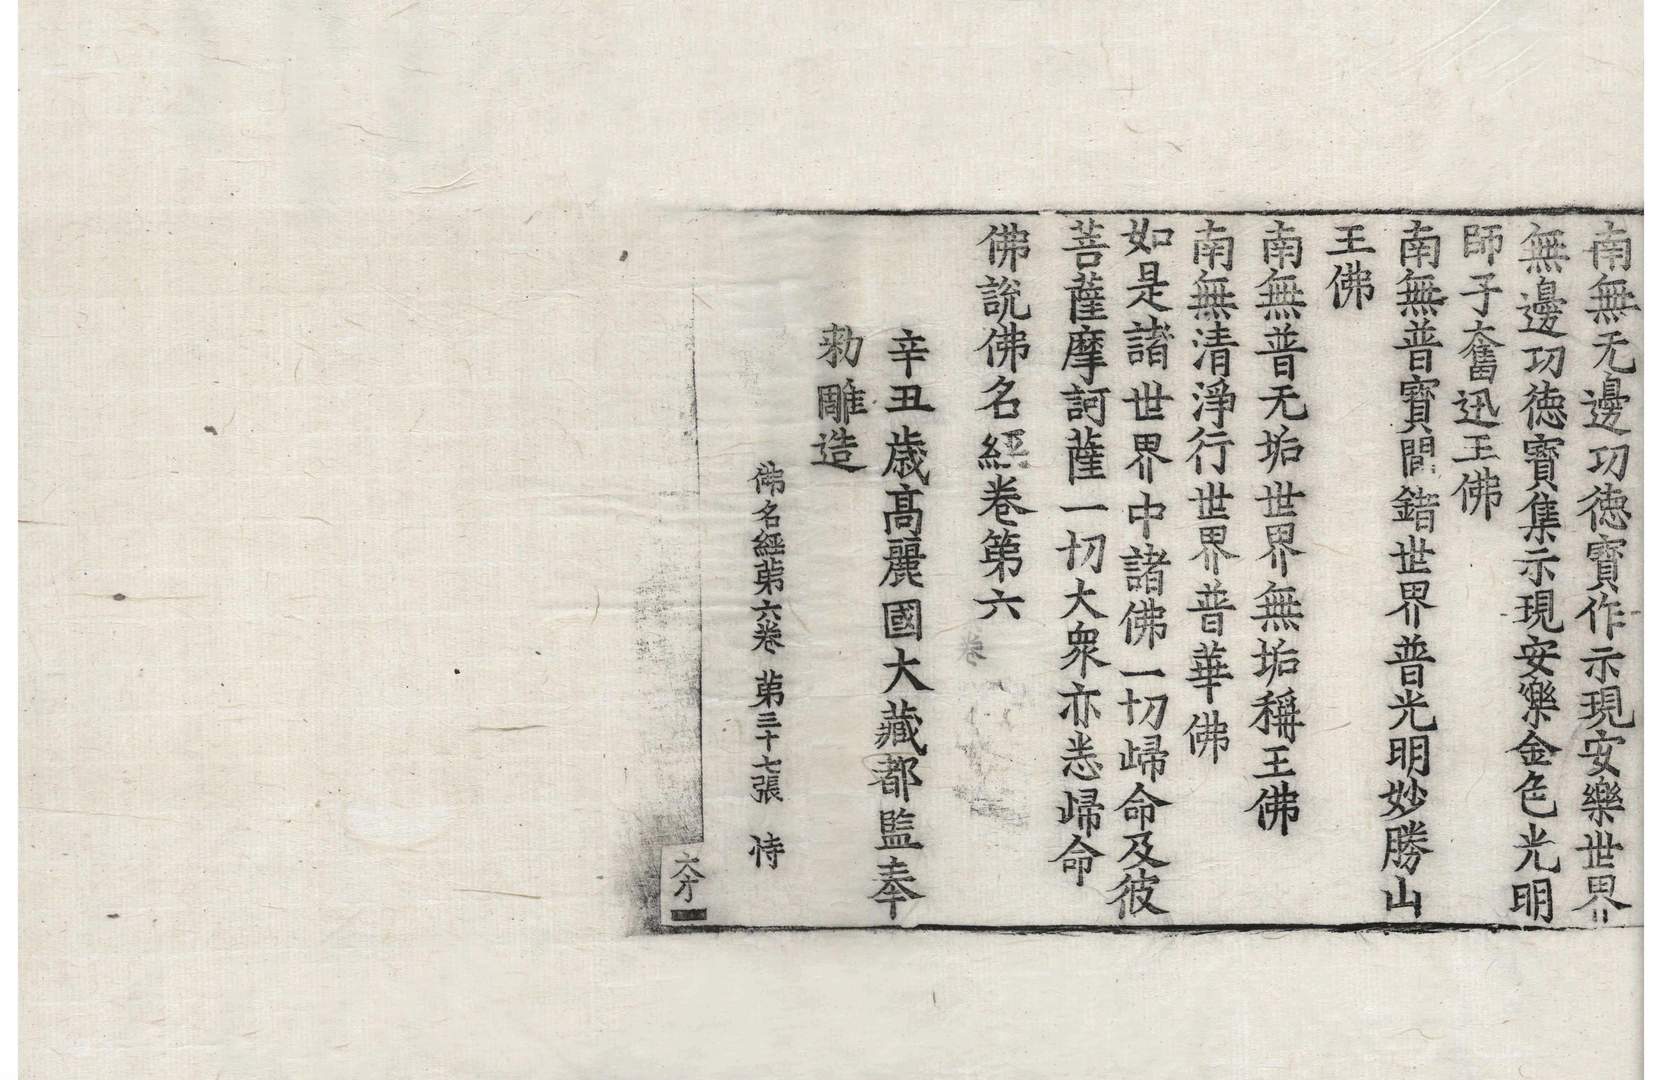 南無无邊功德寶作示現安樂世界
無邊功德寶集示現安樂金色光明
師子奮迅王佛
南無普寶間錯世界普光明妙勝山
王佛
南無普无垢世界無垢稱王佛
南無清淨行世界普華佛
如是諸世界中諸佛一切歸命及彼
菩薩摩訶薩一切大衆亦悉歸命
佛說佛名經卷第六
辛丑歲高麗國大藏都監奉
勅雕造
佛名經第六卷 第三十七張 恃